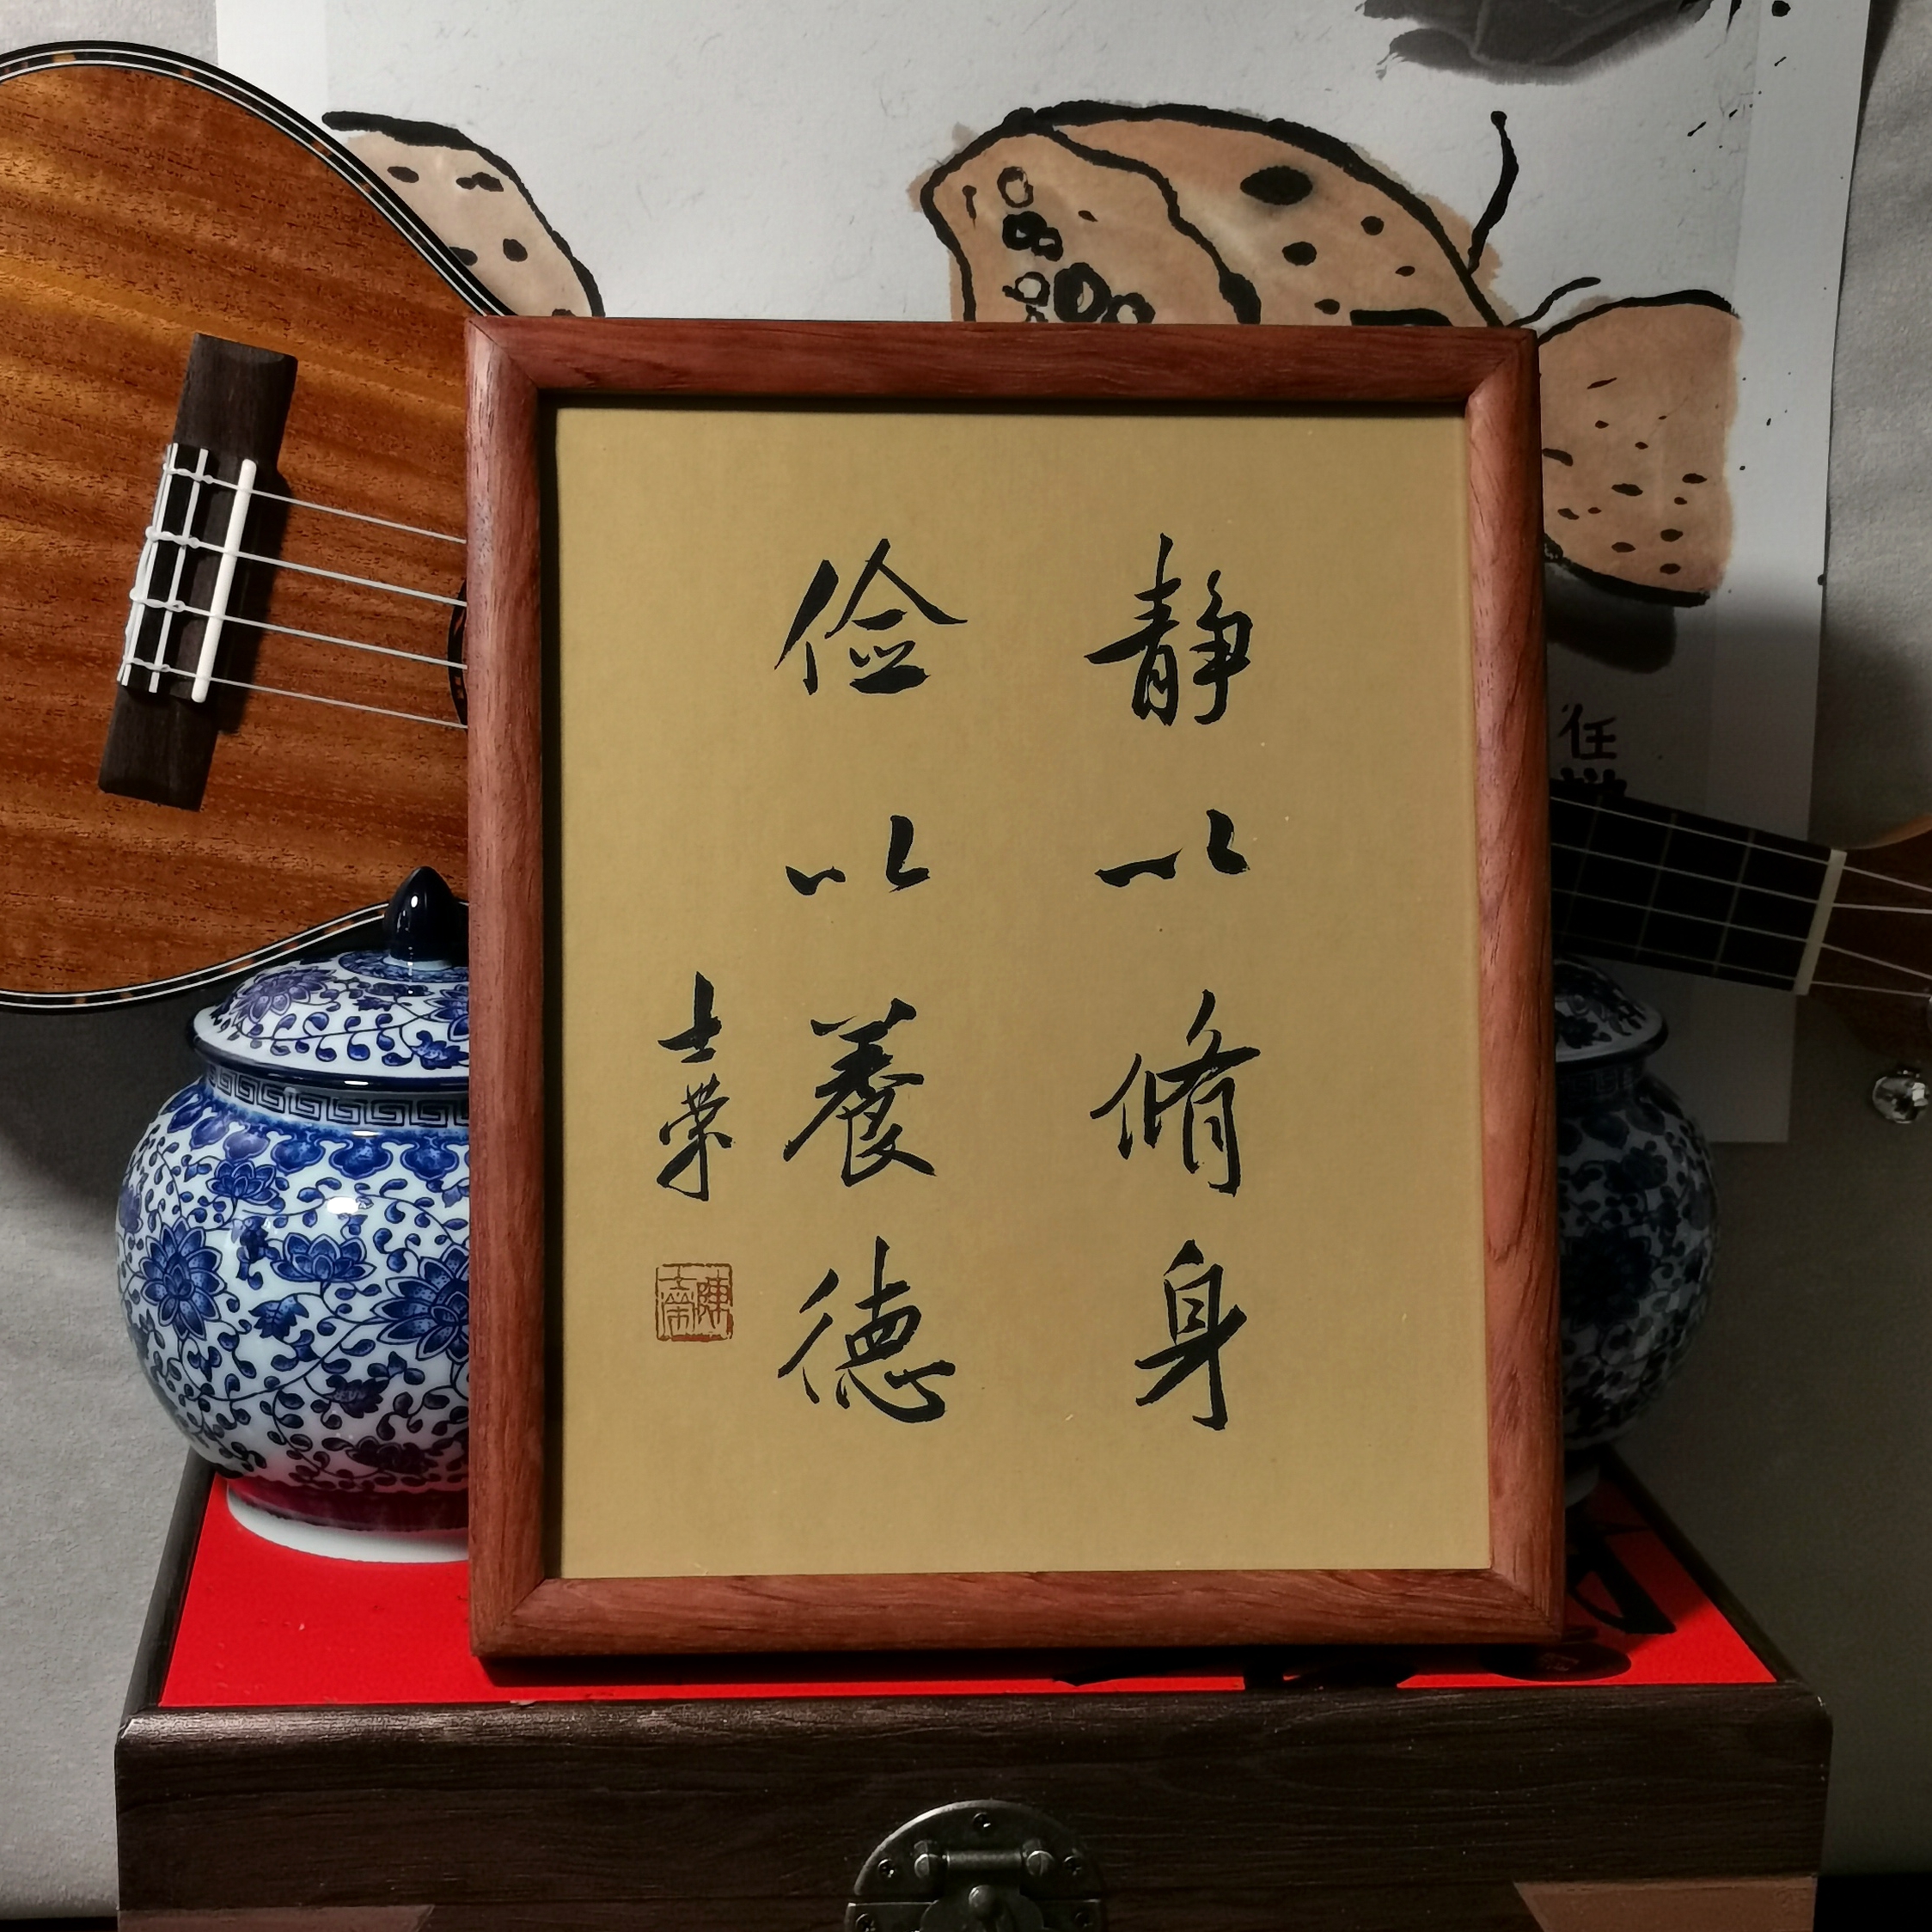 静以脩身
俭以養德
士荣
陳士榮
任